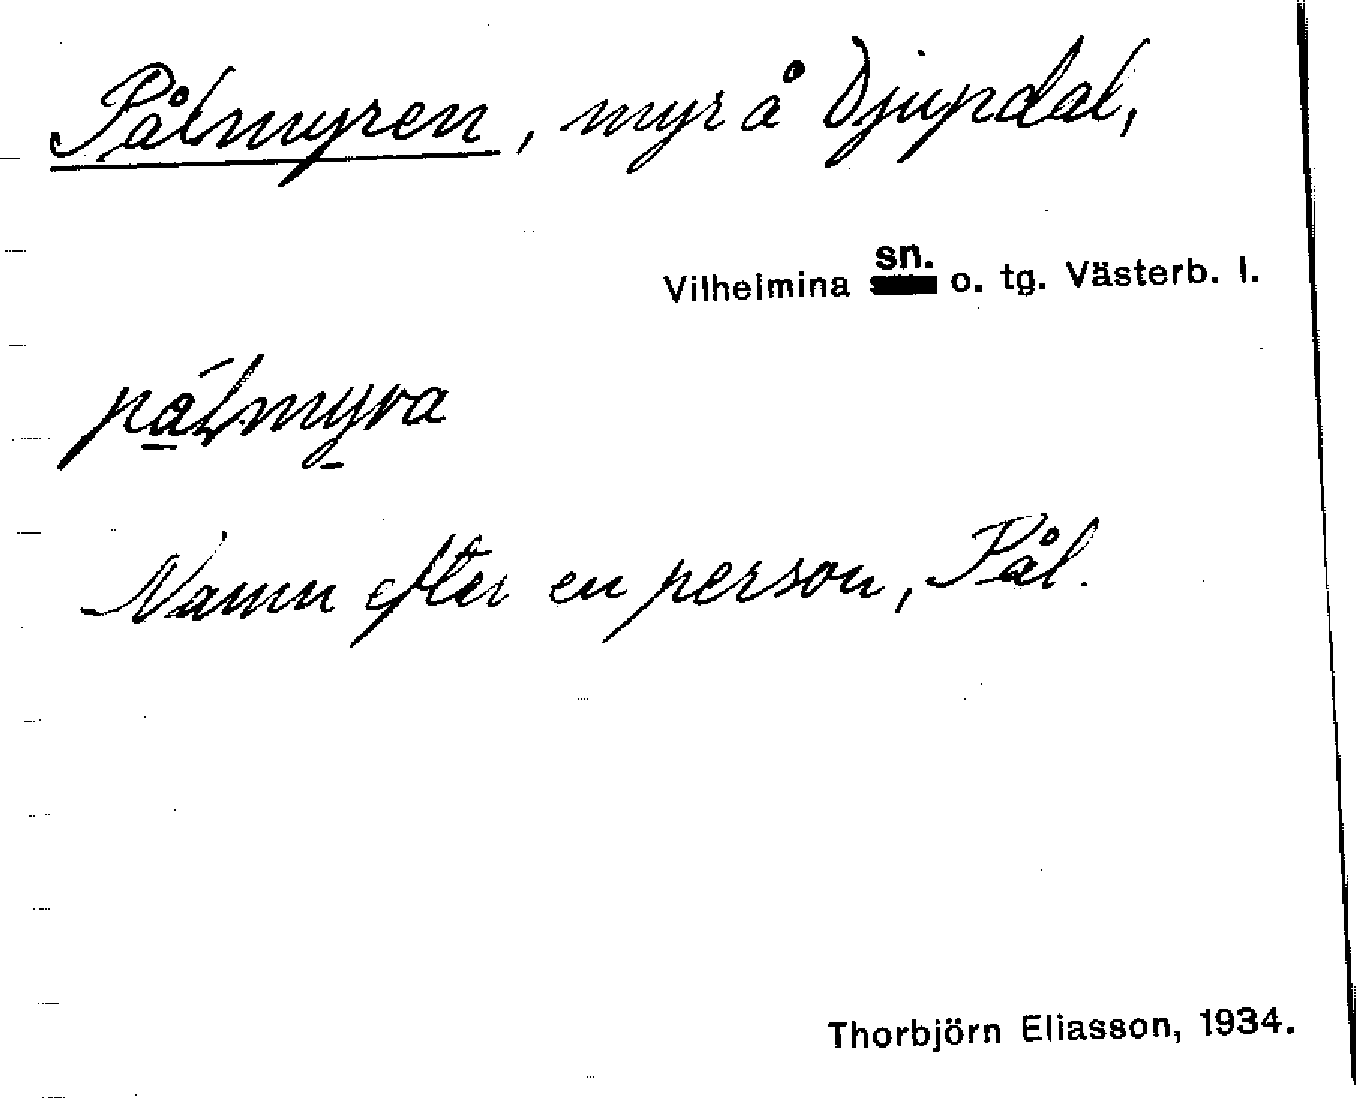 Pålmyren, myr å Djupdal,
Vilhelmina sn. o. tg. Västerb. l.
pálmyra
Namn efter en person, Pål.
Thorbjörn Eliasson, 1934.